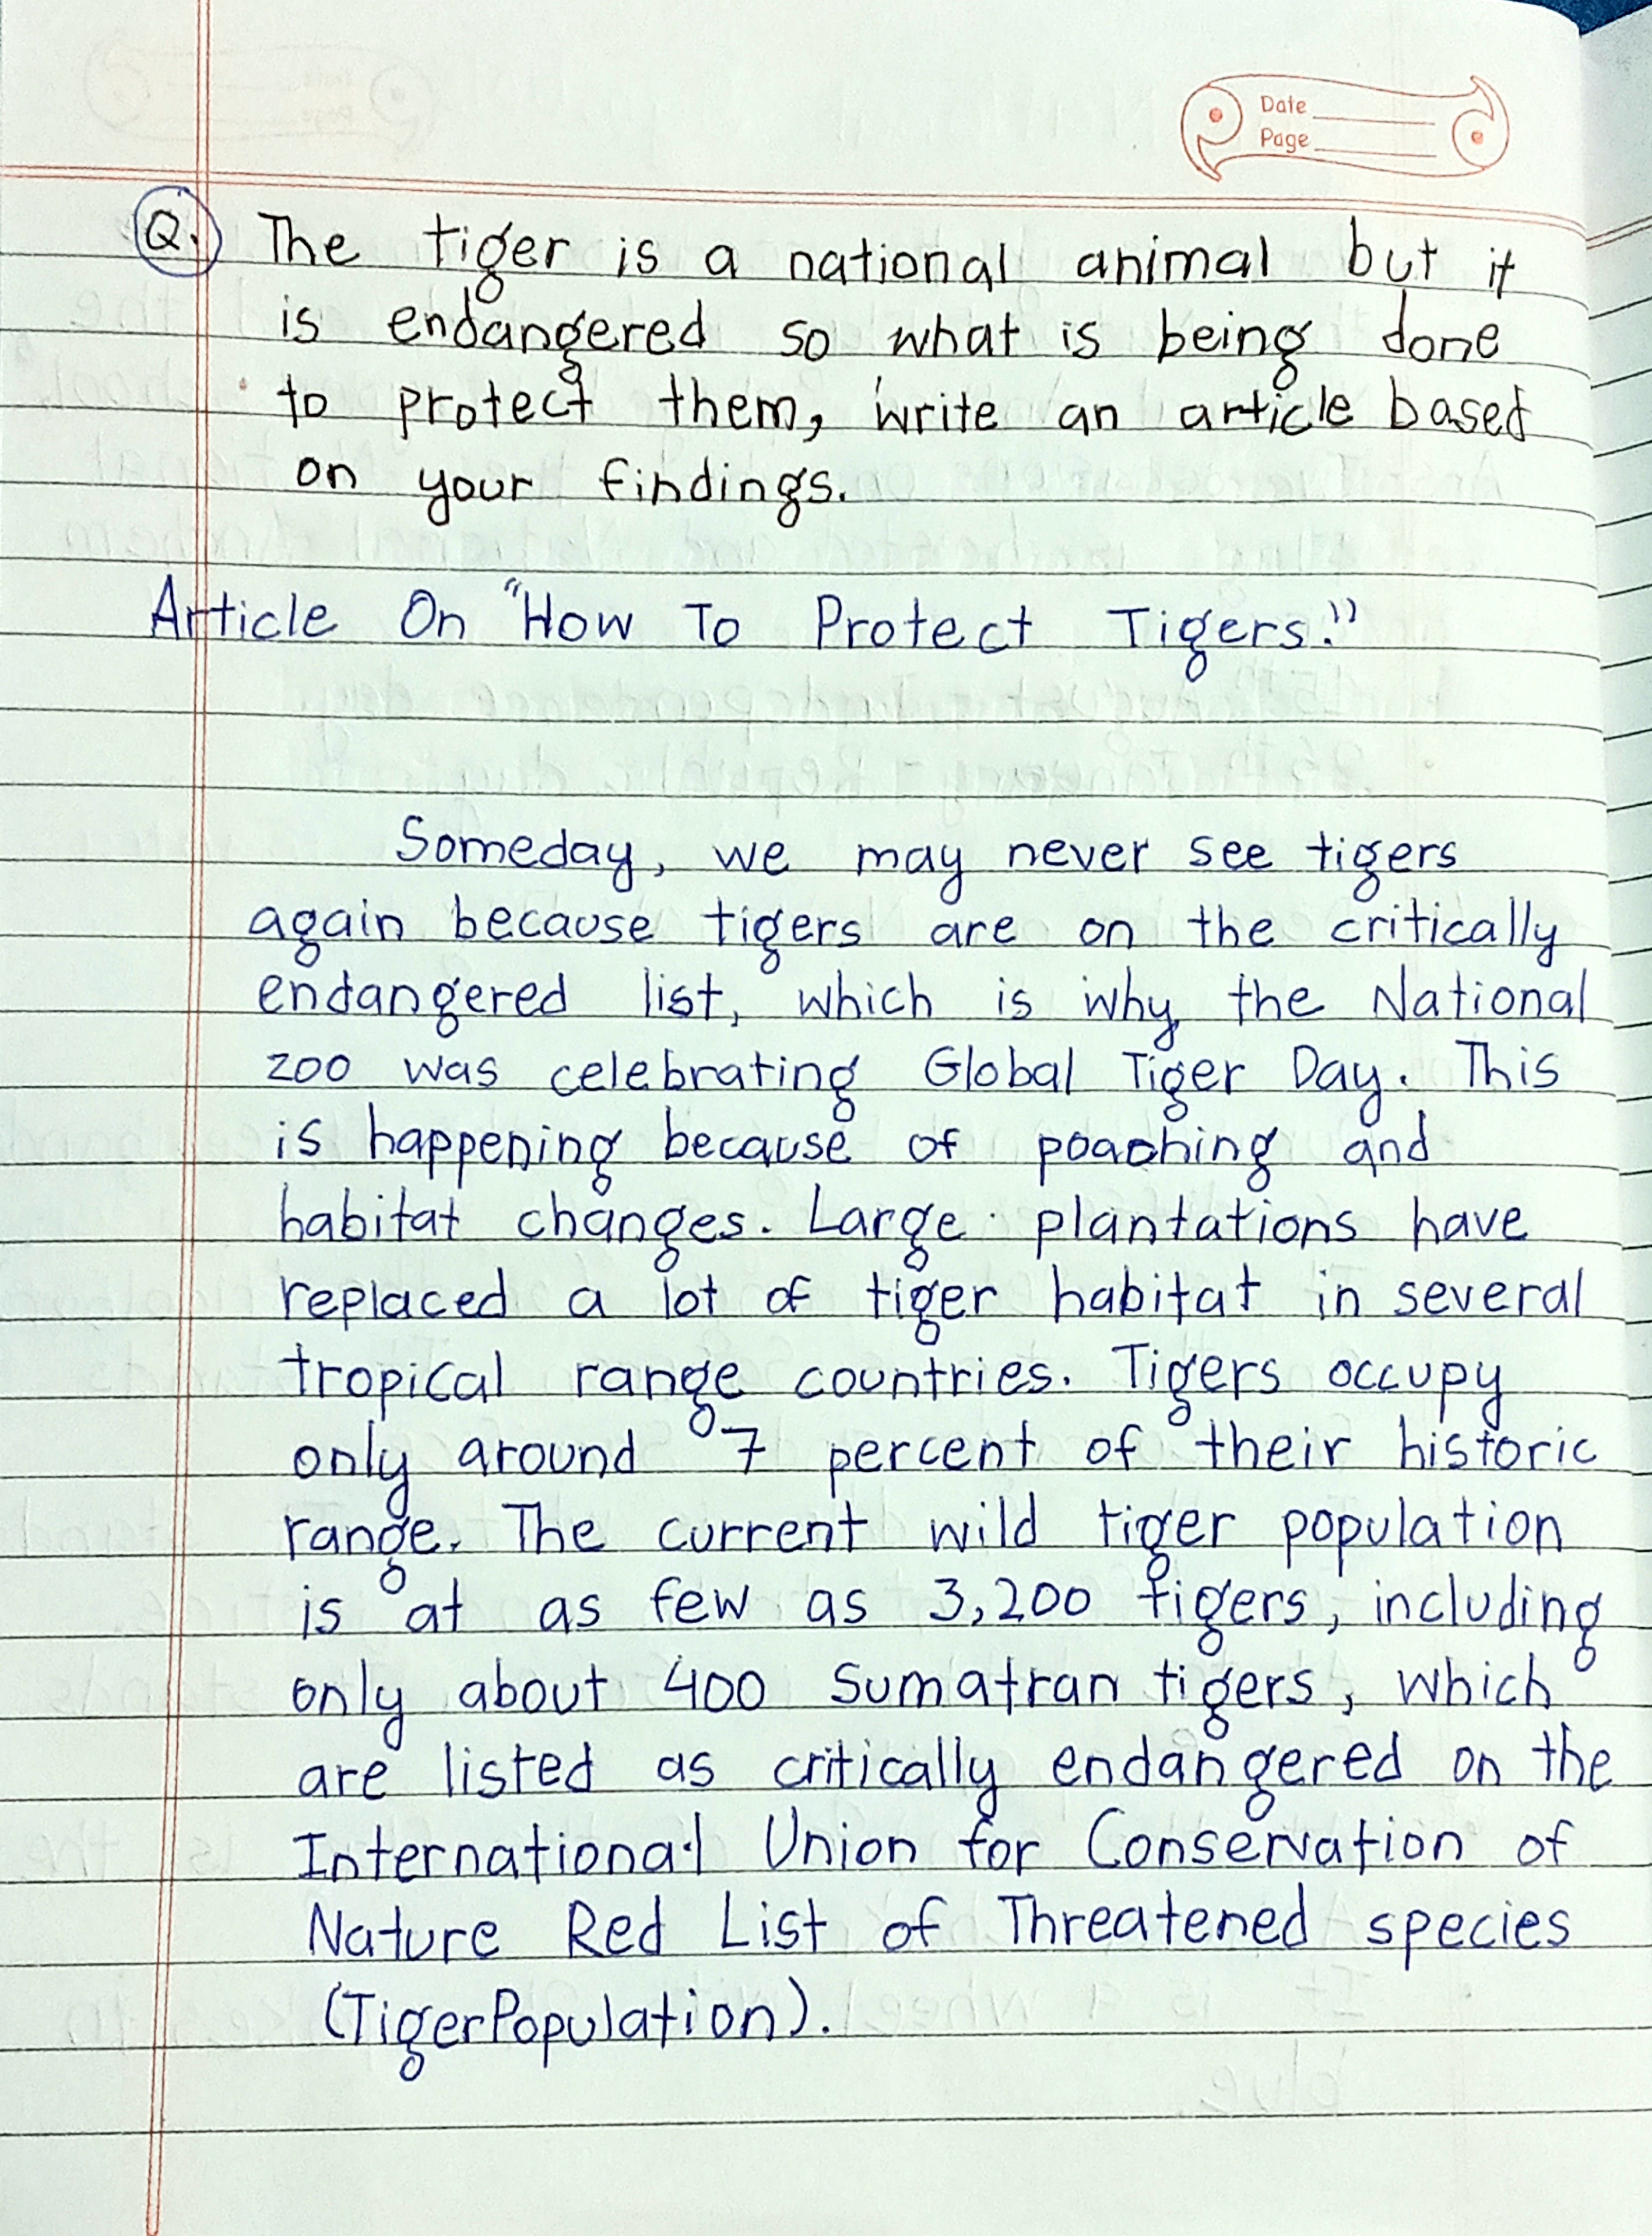 Date
Page
Q. The tiger is a national animal but it
is endangered so what is being done
to protect them, write an article based
on your findings.
Article On "How To Protect Tigers."
Someday, we may never see tigers
again because tigers are on the critically
endangered list, which is why the National
zoo was celebrating Global Tiger Day. This
is happening because of poaching and
habitat changes. Large plantations have
replaced a lot of tiger habitat in several
tropical range countries. Tigers occupy
only around 7 percent of their historic
range. The current wild tiger population
is at as few as 3,200 tigers, including
only about 400 Sumatran tigers, which
are listed as critically endangered on the
International Union for Conservation of
Nature Red List of Threatened species
(TigerPopulation).